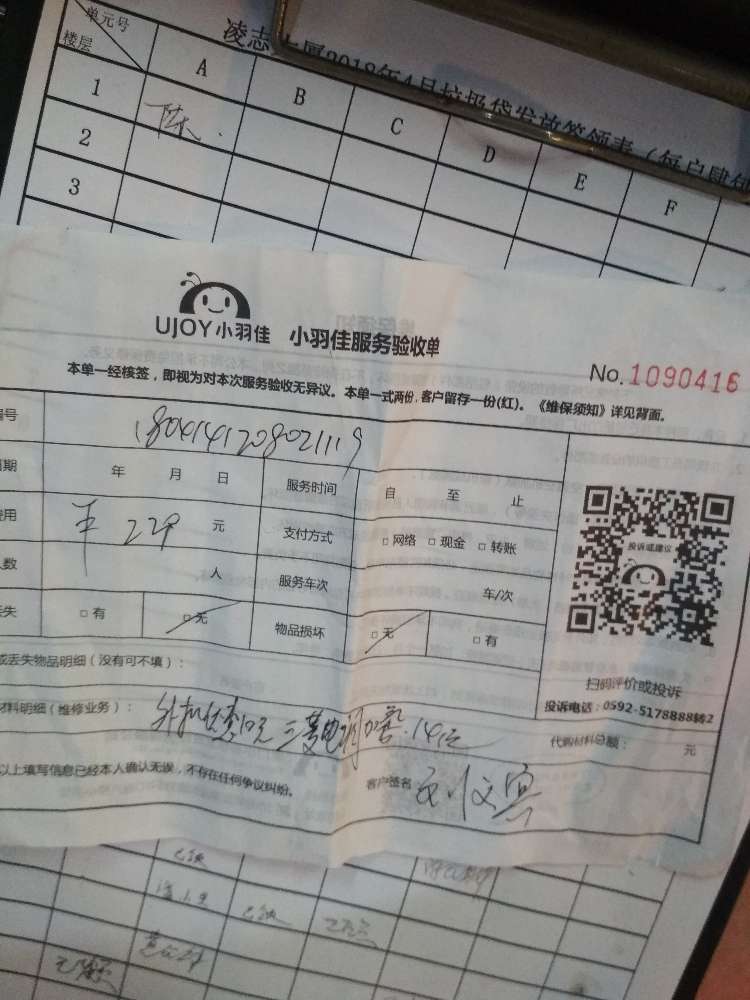 单元号
楼层
凌志大厦2018年4月垃圾袋发放签领表（每户肆包
A B C D E F
1 陈
2
3
UJOY小羽佳 小羽佳服务验收单
No.1090416
本单一经核签，即视为对本次服务验收无异议。本单一式两份，客户留存一份(红)。《维保须知》详见背面。
编号 180414120802119
日期 年 月 日 服务时间 自 至 止
费用 ¥229 元 支付方式 □网络 □现金 □转账
人数 人 服务车次 车/次
丢失 □有 □无 物品损坏 □无 □有
投诉或建议
扫码评价或投诉
投诉电话：0592-5178888转2
或丢失物品明细（没有可不填）：
材料明细（维修业务）：
代购材料总额： 元
以上填写信息已经本人确认无误，不存在任何争议纠纷。
客户签名 刘文宾